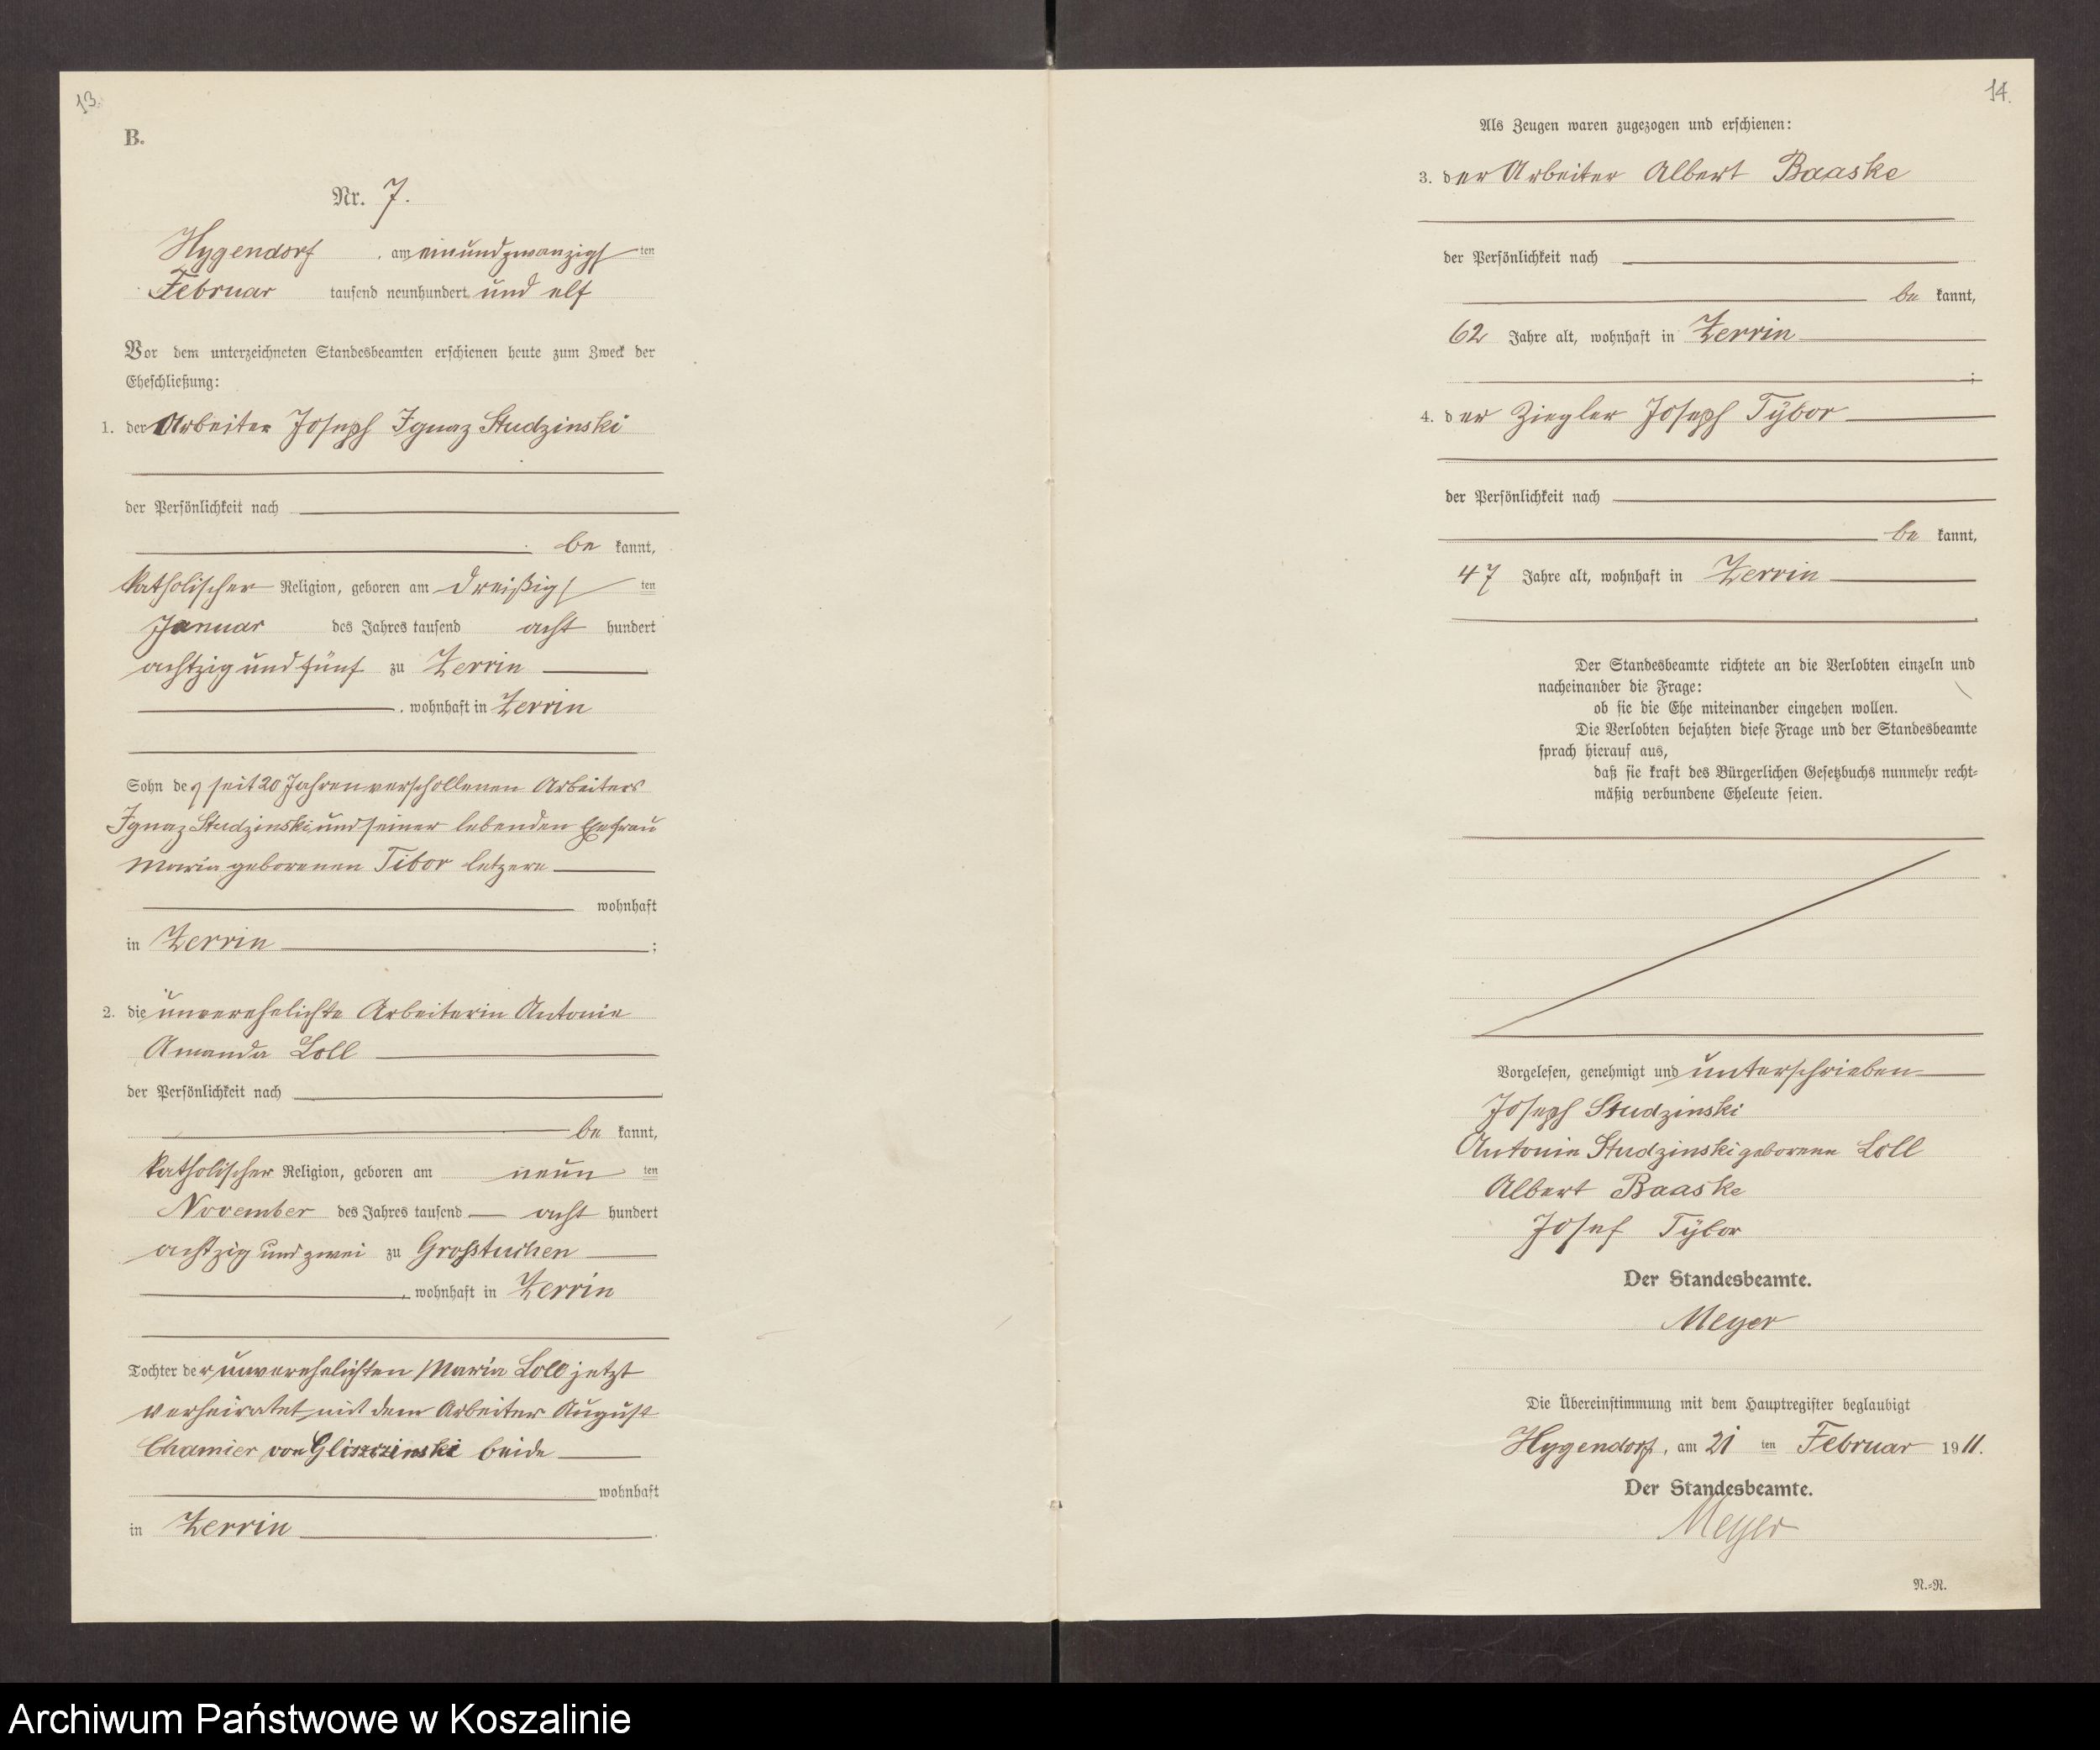 13.
B.
Nr. 7.
Hygendorf, am einundzwanzigsten
Februar tausend neunhundert und elf
Vor dem unterzeichneten Standesbeamten erschienen heute zum Zweck der
Eheschließung:
1. der Arbeiter Joseph Ignaz Studzinski
der Persönlichkeit nach
be kannt,
katholischer Religion, geboren am dreißigsten
Januar des Jahres tausend acht hundert
achtzig und fünf zu Zerrin
, wohnhaft in Zerrin
Sohn des seit 20 Jahren verschollenen Arbeiters
Ignaz Studzinski und seiner lebenden Ehefrau
Maria geborenen Tibor letzere
wohnhaft
in Zerrin ;
2. die unverehelichte Arbeiterin Antonie
Amanda Loll
der Persönlichkeit nach
be kannt,
katholischer Religion, geboren am neun ten
November des Jahres tausend acht hundert
achtzig und zwei zu Grosstuchen
, wohnhaft in Zerrin
Tochter der unverehelichten Maria Loll jetzt
verheiratet mit dem Arbeiter August
Chamier von Gliszczinski beide
wohnhaft
in Zerrin .
14.
Als Zeugen waren zugezogen und erschienen:
3. der Arbeiter Albert Baaske
der Persönlichkeit nach
be kannt,
62 Jahre alt, wohnhaft in Zerrin
;
4. der Ziegler Joseph Tÿbor
der Persönlichkeit nach
be kannt,
47 Jahre alt, wohnhaft in Zerrin
Der Standesbeamte richtete an die Verlobten einzeln und
nacheinander die Frage:
ob sie die Ehe miteinander eingehen wollen.
Die Verlobten bejahten diese Frage und der Standesbeamte
sprach hierauf aus,
daß sie kraft des Bürgerlichen Gesetzbuchs nunmehr recht-
mäßig verbundene Eheleute seien.
Vorgelesen, genehmigt und unterschrieben
Joseph Studzinski
Antonie Studzinski geborene Loll
Albert Baaske
Josef Tÿbor
Der Standesbeamte.
Meyer
Die Übereinstimmung mit dem Hauptregister beglaubigt
Hygendorf, am 21 ten Februar 1911.
Der Standesbeamte.
Meyer
N.-N.
Archiwum Państwowe w Koszalinie